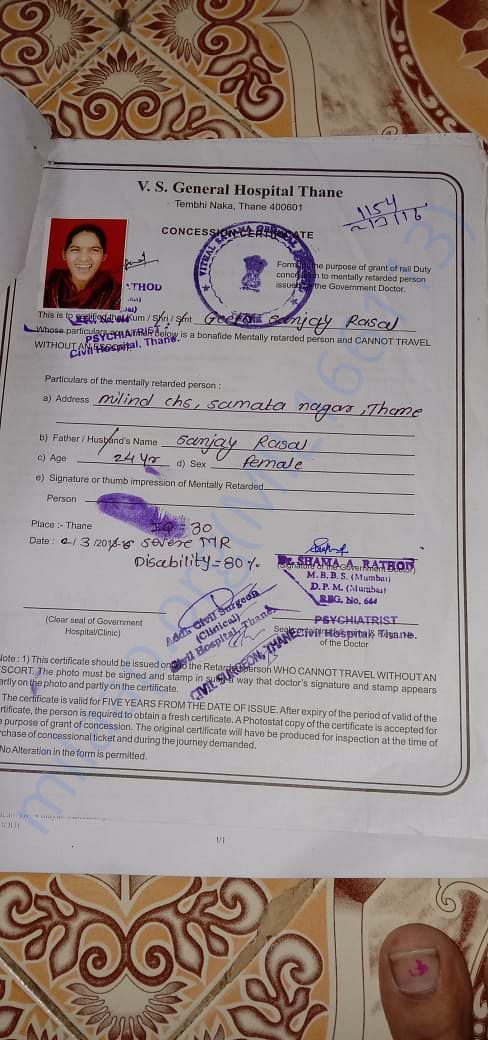 V. S. General Hospital Thane
Tembhi Naka, Thane 400601
1154
CONCESSION CERTIFICATE
Form for the purpose of grant of rail Duty
concession to mentally retarded person
issued by the Government Doctor.
This is to certified that Kum / Shri / Smt Geeta Sanjay Rasal
Whose particulars are given below is a bonafide Mentally retarded person and CANNOT TRAVEL
WITHOUT AN ESCORT.
PSYCHIATRIST
Civil Hospital, Thane.
Particulars of the mentally retarded person :
a) Address milind chs, samata nagar, Thane
b) Father / Husband's Name Sanjay Rasal
c) Age 24 yr d) Sex Female
e) Signature or thumb impression of Mentally Retarded
Person
Place :- Thane IQ = 30
Date : 2/3/2016 Severe MR
Disability = 80 %
Dr. SHAMA A. RATHOD
(Signature of the Government Doctor)
M. B. B. S. (Mumbai)
D. P. M. (Mumbai)
REG. No. 644
PSYCHIATRIST
Civil Hospital, Thane.
of the Doctor
Addl. Civil Surgeon
(Clinical)
Civil Hospital, Thane
CIVIL SURGEON, THANE
(Clear seal of Government
Hospital/Clinic)
Note : 1) This certificate should be issued only to the Retarded person WHO CANNOT TRAVEL WITHOUT AN
ESCORT. The photo must be signed and stamp in such a way that doctor's signature and stamp appears
partly on the photo and partly on the certificate.
The certificate is valid for FIVE YEARS FROM THE DATE OF ISSUE. After expiry of the period of valid of the
certificate, the person is required to obtain a fresh certificate. A Photostat copy of the certificate is accepted for
purpose of grant of concession. The original certificate will have be produced for inspection at the time of
purchase of concessional ticket and during the journey demanded.
No Alteration in the form is permitted.
1/1